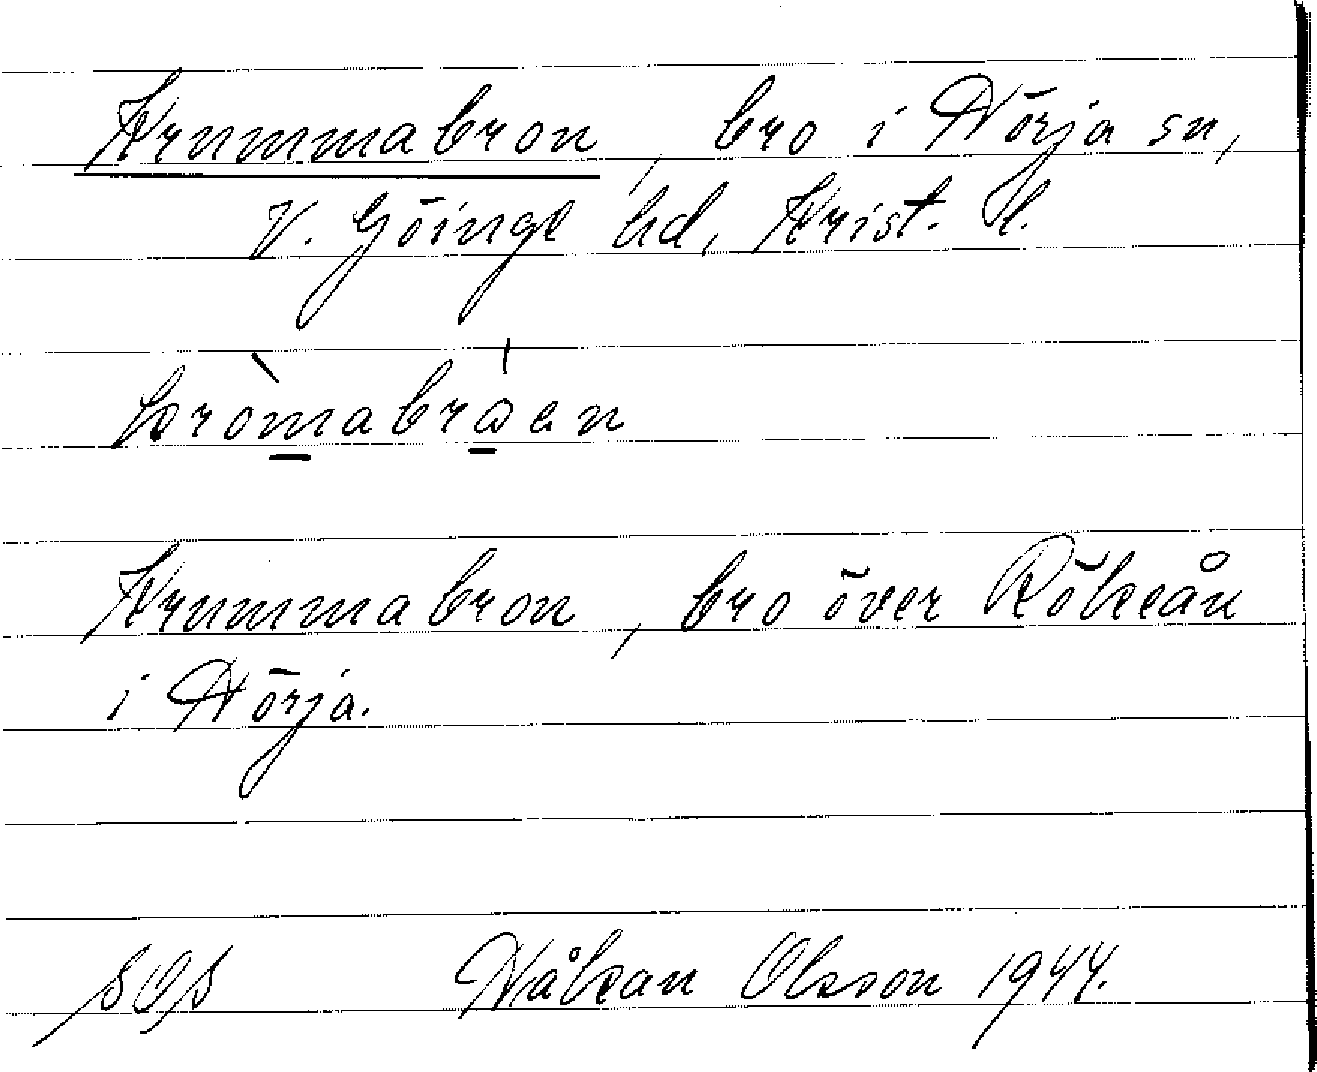 Krummabron, bro i Hörja sn,
V. Göinge hd, Krist. l.
kròmabrɷ́en
Krummabron, bro över Rökeån
i Hörja.
Håkan Olsson 1944.